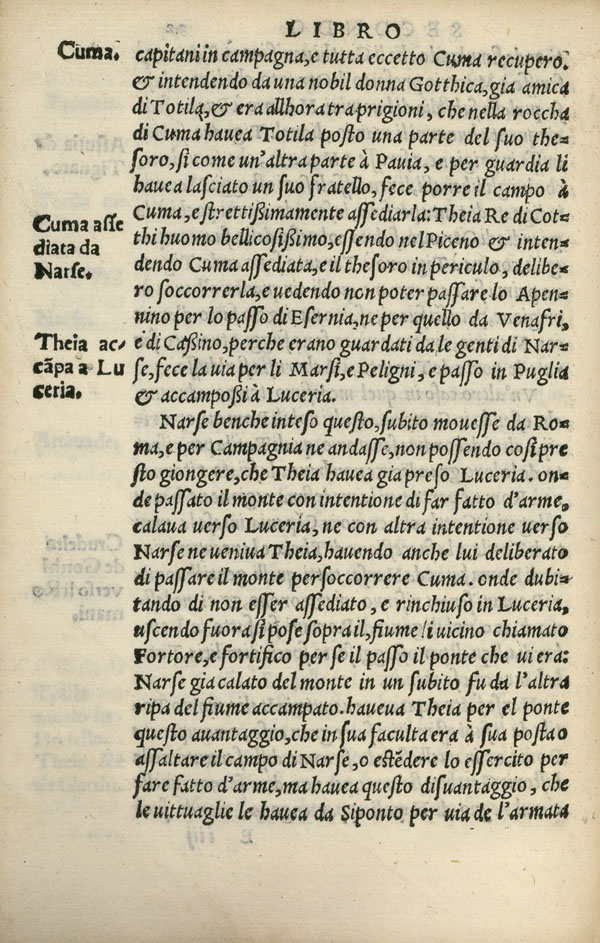 LIBRO
Cuma.
capitani in campagna, e tutta eccetto Cuma recupero.
& intendendo da una nobil donna Gotthica, gia amica
di Totila, & era allhora tra prigioni, che nella roccha
di Cuma hauea Totila posto una parte del suo the=
soro, si come un'altra parte à Pauia, e per guardia li
hauea lasciato un suo fratello, fece porre il campo à
Cuma asse
diata da
Narse.
Cuma, e strettißimamente assediarla: Theia Re di Cot=
thi huomo bellicosißimo, essendo nel Piceno & inten=
dendo Cuma assediata, e il thesoro in periculo, delibe=
ro soccorrerla, e uedendo non poter passare lo Apen=
nino per lo passo di Esernia, ne per quello da Venafri,
Theia ac=
cãpa a Lu
ceria.
e di Caßino, perche erano guardati da le genti di Nar=
se, fece la uia per li Marsi, e Peligni, e passo in Puglia
& accampoßi à Luceria.
Narse benche inteso questo, subito mouesse da Ro=
ma, e per Campagnia ne andasse, non possendo cosi pre
sto giongere, che Theia hauea gia preso Luceria. on=
de passato il monte con intentione di far fatto d'arme,
calaua uerso Luceria, ne con altra intentione uerso
Narse ne ueniua Theia, hauendo anche lui deliberato
di passare il monte per soccorrere Cuma. onde dubi=
tando di non esser assediato, e rinchiuso in Luceria,
uscendo fuora si pose sopra il, fiume li uicino chiamato
Fortore, e fortifico per se il passo il ponte che ui era:
Narse gia calato del monte in un subito fu da l'altra
ripa del fiume accampato. haueua Theia per el ponte
questo auantaggio, che in sua faculta era à sua posta o
assaltare il campo di Narse, o estẽdere lo essercito per
fare fatto d'arme, ma hauea questo disuantaggio, che
le uittuaglie le hauea da Siponto per uia de l'armata